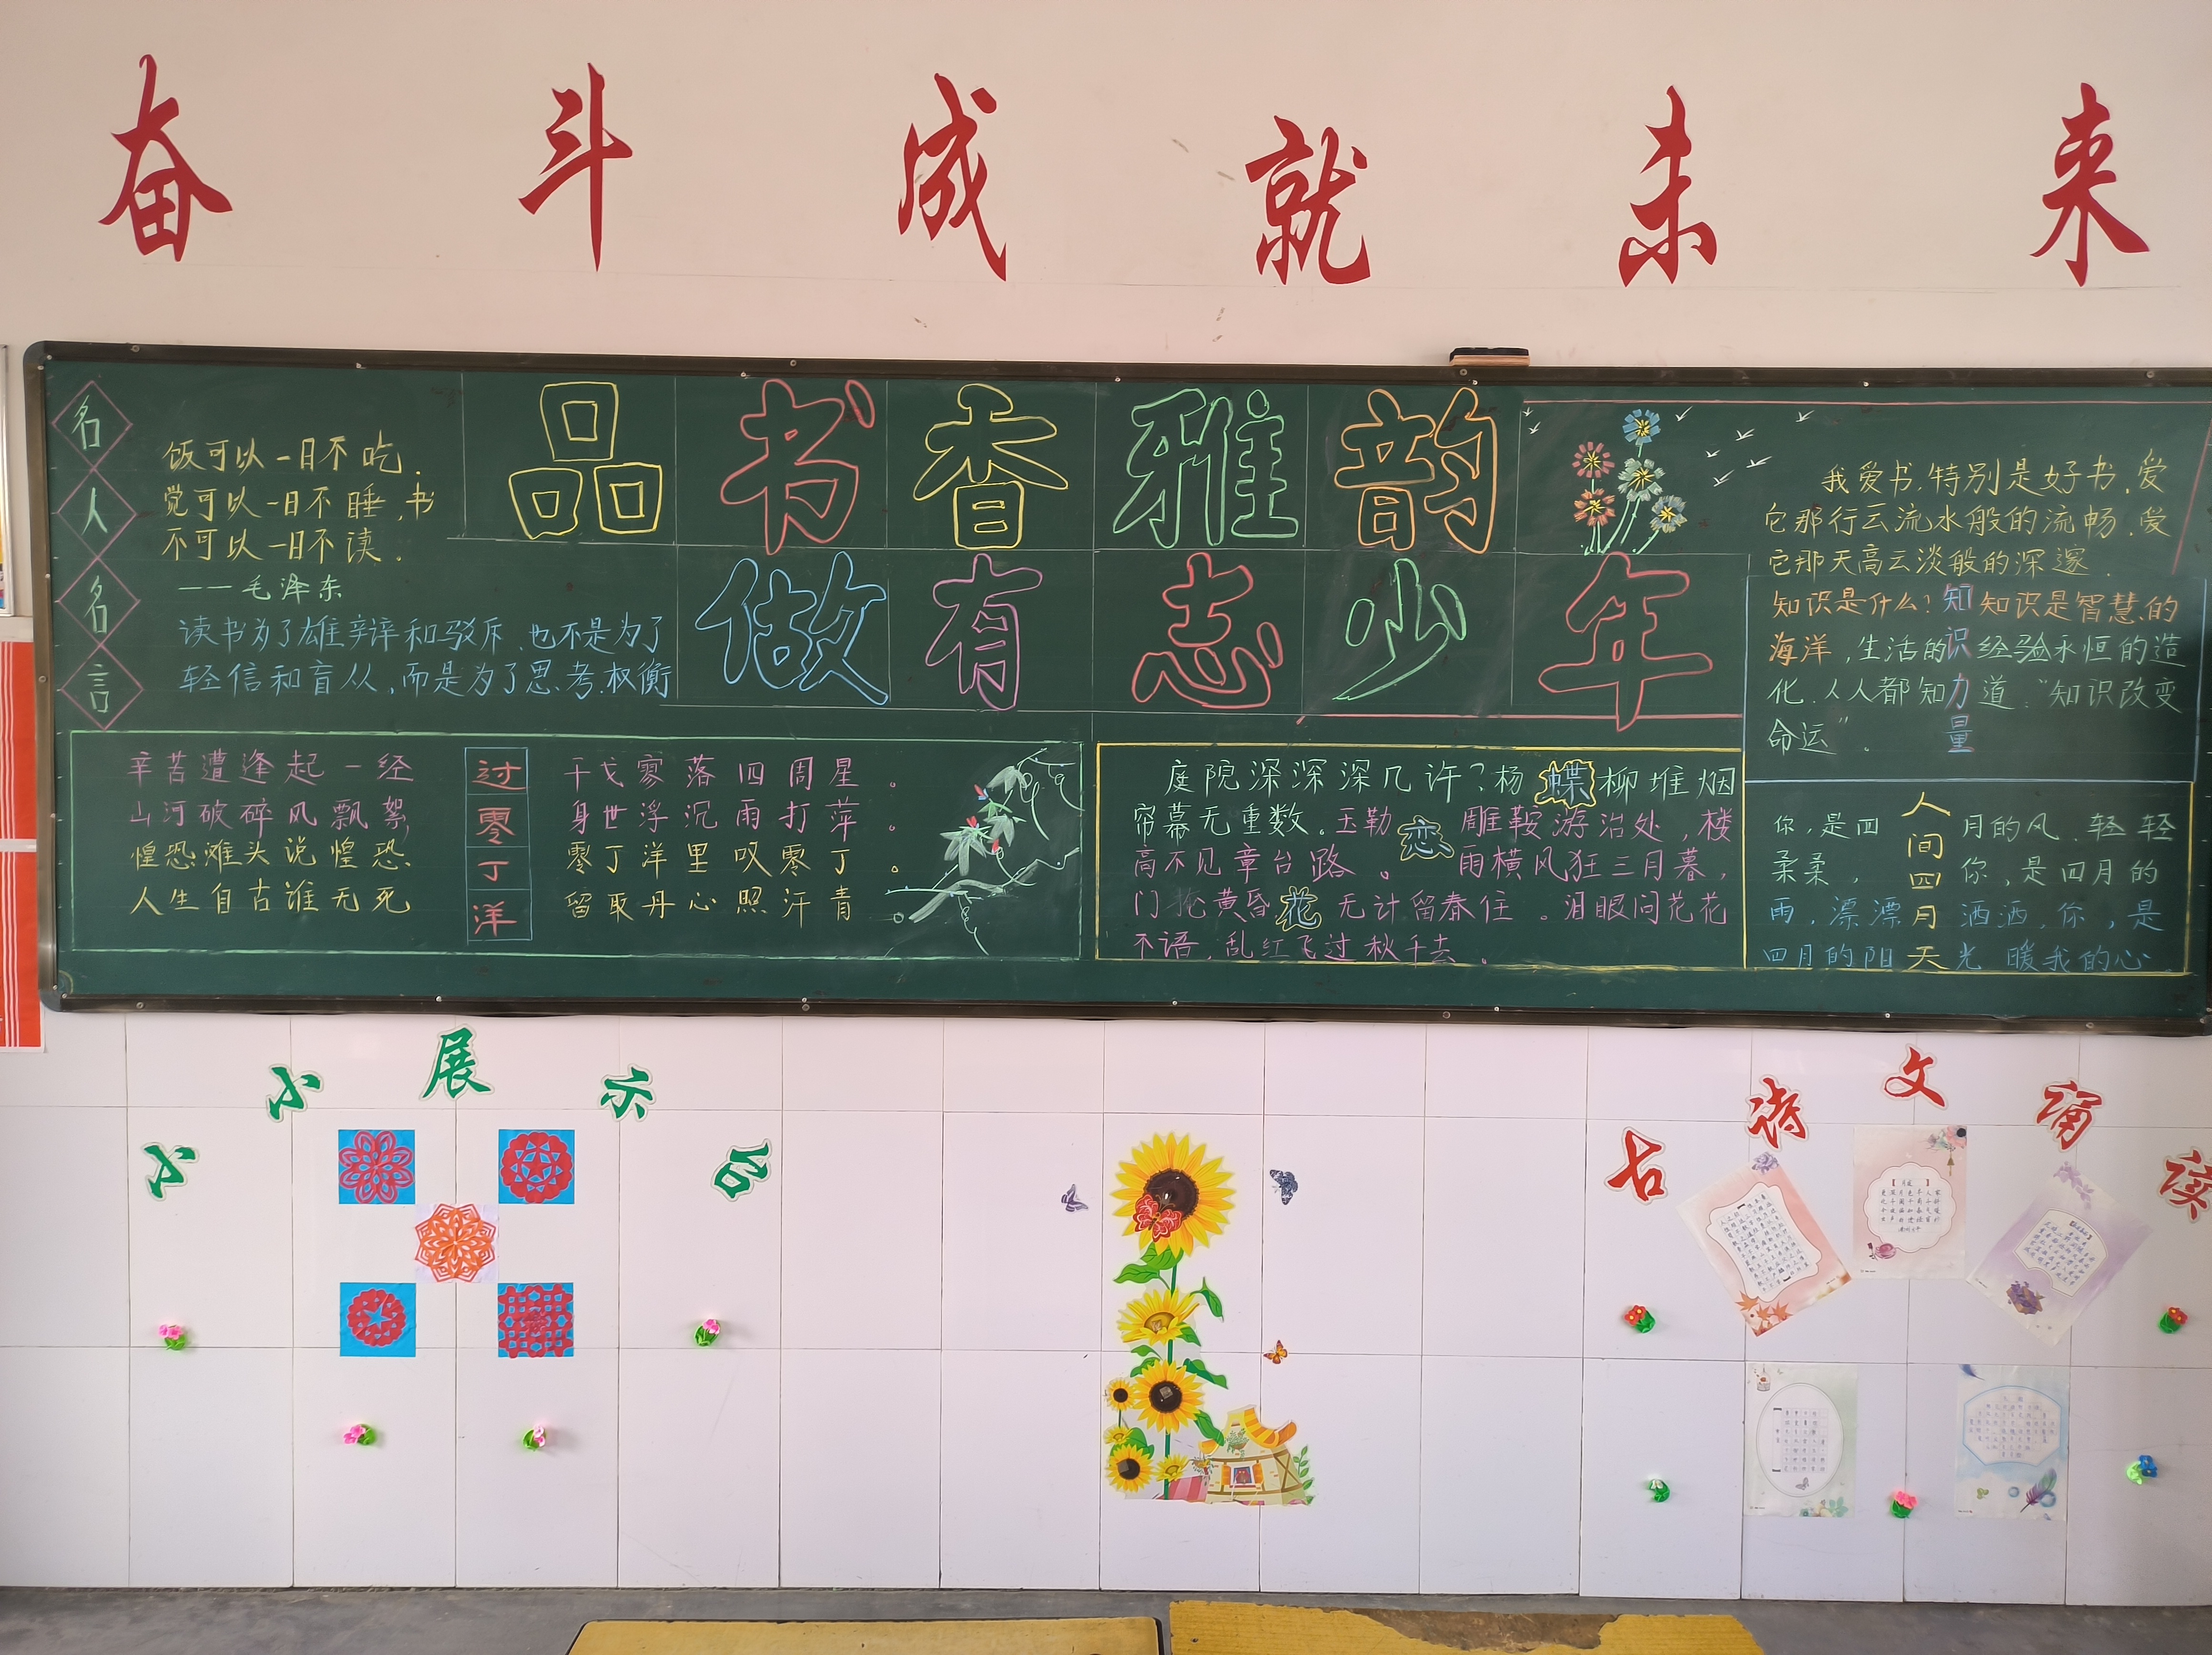 奋斗成就未来
名人名言
饭可以一日不吃.
觉可以一日不睡,书
不可以一日不读.
——毛泽东
读书为了雄辩和驳斥.也不是为了
轻信和盲从,而是为了思考.权衡
品书香雅韵
做有志少年
我爱书,特别是好书.爱
它那行云流水般的流畅.爱
它那天高云淡般的深邃.
知识力量
知识是什么?知识是智慧的
海洋,生活的经验永恒的造
化.人人都知道:"知识改变
命运"。
过零丁洋
辛苦遭逢起一经 干戈寥落四周星。
山河破碎风飘絮 身世浮沉雨打萍。
惶恐滩头说惶恐 零丁洋里叹零丁。
人生自古谁无死 留取丹心照汗青
蝶恋花
庭院深深深几许?杨柳堆烟
帘幕无重数。玉勒雕鞍游冶处,楼
高不见章台路。雨横风狂三月暮,
门掩黄昏无计留春住。泪眼问花花
不语,乱红飞过秋千去。
人间四月天
你,是四月的风.轻轻
柔柔,你,是四月的
雨,漂漂洒洒,你,是
四月的阳光 暖我的心。
小小展示台
古诗文诵读